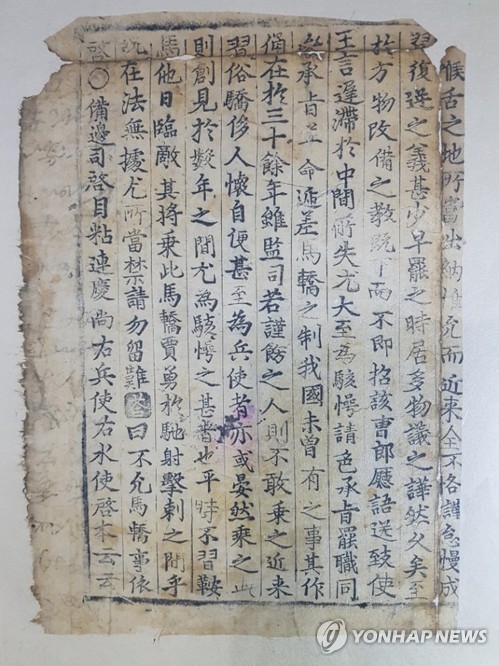 喉舌之地所當出納惟允而近來全不恪謹怠慢成
習復逆之義甚少早罷之時居多物議之譁然久矣至
於方物改備之教既下而不即招該曹郎廳語送致使
王言遲滯於中間所失尤大至為駭愕請色承旨罷職同
承旨並命遞差馬轎之制我國未曾有之事其作
俑在於三十餘年雖監司若謹飭之人則不敢乘之近來
習俗驕侈人懷自便甚至為兵使者亦或晏然乘之此
則創見於數年之間尤為駭愕之甚者也平時不習鞍
馬他日臨敵其將乘此馬轎賈勇於馳射擊刺之間乎
況在法無據尤所當禁請勿留難答曰不允馬轎事依
啓○備邊司啓目粘連慶尚右兵使右水使啓本云云
YONHAP NEWS